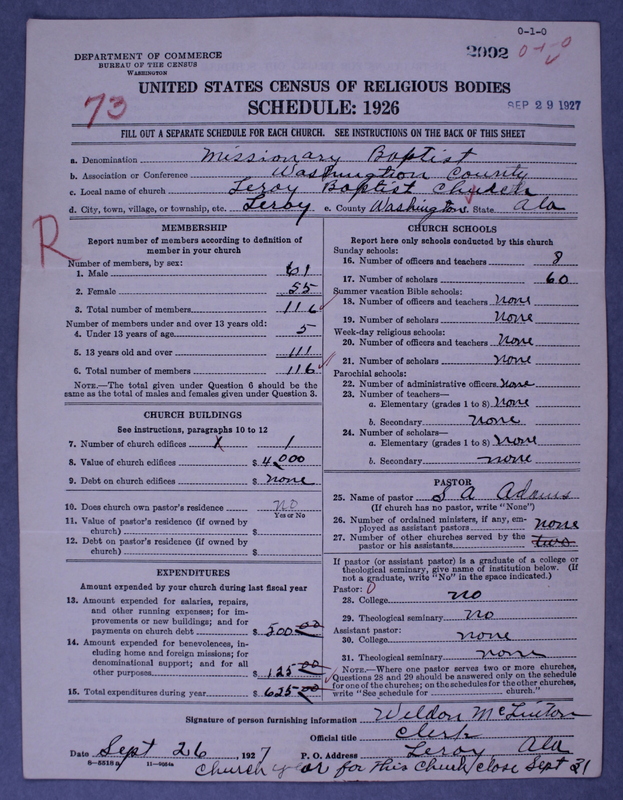 0-1-0
2092 0-1-0
DEPARTMENT OF COMMERCE
BUREAU OF THE CENSUS
WASHINGTON
UNITED STATES CENSUS OF RELIGIOUS BODIES
73
SCHEDULE: 1926
SEP 29 1927
FILL OUT A SEPARATE SCHEDULE FOR EACH CHURCH. SEE INSTRUCTIONS ON THE BACK OF THIS SHEET
a. Denomination Missionary Baptist
b. Association or Conference Washington County
c. Local name of church Leroy Baptist Church
d. City, town, village, or township, etc. Leroy e. County Washington f. State Ala
R
MEMBERSHIP
Report number of members according to definition of
member in your church
Number of members, by sex:
1. Male 61
2. Female 55
3. Total number of members 116
Number of members under and over 13 years old:
4. Under 13 years of age 5
5. 13 years old and over 111
6. Total number of members 116
NOTE.—The total given under Question 6 should be the
same as the total of males and females given under Question 3.
CHURCH BUILDINGS
See instructions, paragraphs 10 to 12
7. Number of church edifices x 1
8. Value of church edifices $ 4,000
9. Debt on church edifices $ none
10. Does church own pastor's residence no
Yes or No
11. Value of pastor's residence (if owned by
church) $
12. Debt on pastor's residence (if owned by
church) $
EXPENDITURES
Amount expended by your church during last fiscal year
13. Amount expended for salaries, repairs,
and other running expenses; for im-
provements or new buildings; and for
payments on church debt $ 500 00
14. Amount expended for benevolences, in-
cluding home and foreign missions; for
denominational support; and for all
other purposes $ 125 00
15. Total expenditures during year $ 625 00
CHURCH SCHOOLS
Report here only schools conducted by this church
Sunday schools:
16. Number of officers and teachers 8
17. Number of scholars 60
Summer vacation Bible schools:
18. Number of officers and teachers none
19. Number of scholars none
Week-day religious schools:
20. Number of officers and teachers none
21. Number of scholars none
Parochial schools:
22. Number of administrative officers none
23. Number of teachers—
a. Elementary (grades 1 to 8) none
b. Secondary none
24. Number of scholars—
a. Elementary (grades 1 to 8) none
b. Secondary none
PASTOR
25. Name of pastor S A Adams
(If church has no pastor, write "None")
26. Number of ordained ministers, if any, em-
ployed as assistant pastors none
27. Number of other churches served by the
pastor or his assistants two
If pastor (or assistant pastor) is a graduate of a college or
theological seminary, give name of institution below. (If
not a graduate, write "No" in the space indicated.)
Pastor: 0
28. College no
29. Theological seminary no
Assistant pastor:
30. College none
31. Theological seminary none
NOTE.—Where one pastor serves two or more churches,
Questions 28 and 29 should be answered only on the schedule
for one of the churches; on the schedules for the other churches,
write "See schedule for church."
Signature of person furnishing information Weldon McLinton
Official title Clerk
Date Sept 26, 1927 P. O. Address Leroy, Ala
8-5518a 11-9054a
Church year for this church close Sept 21